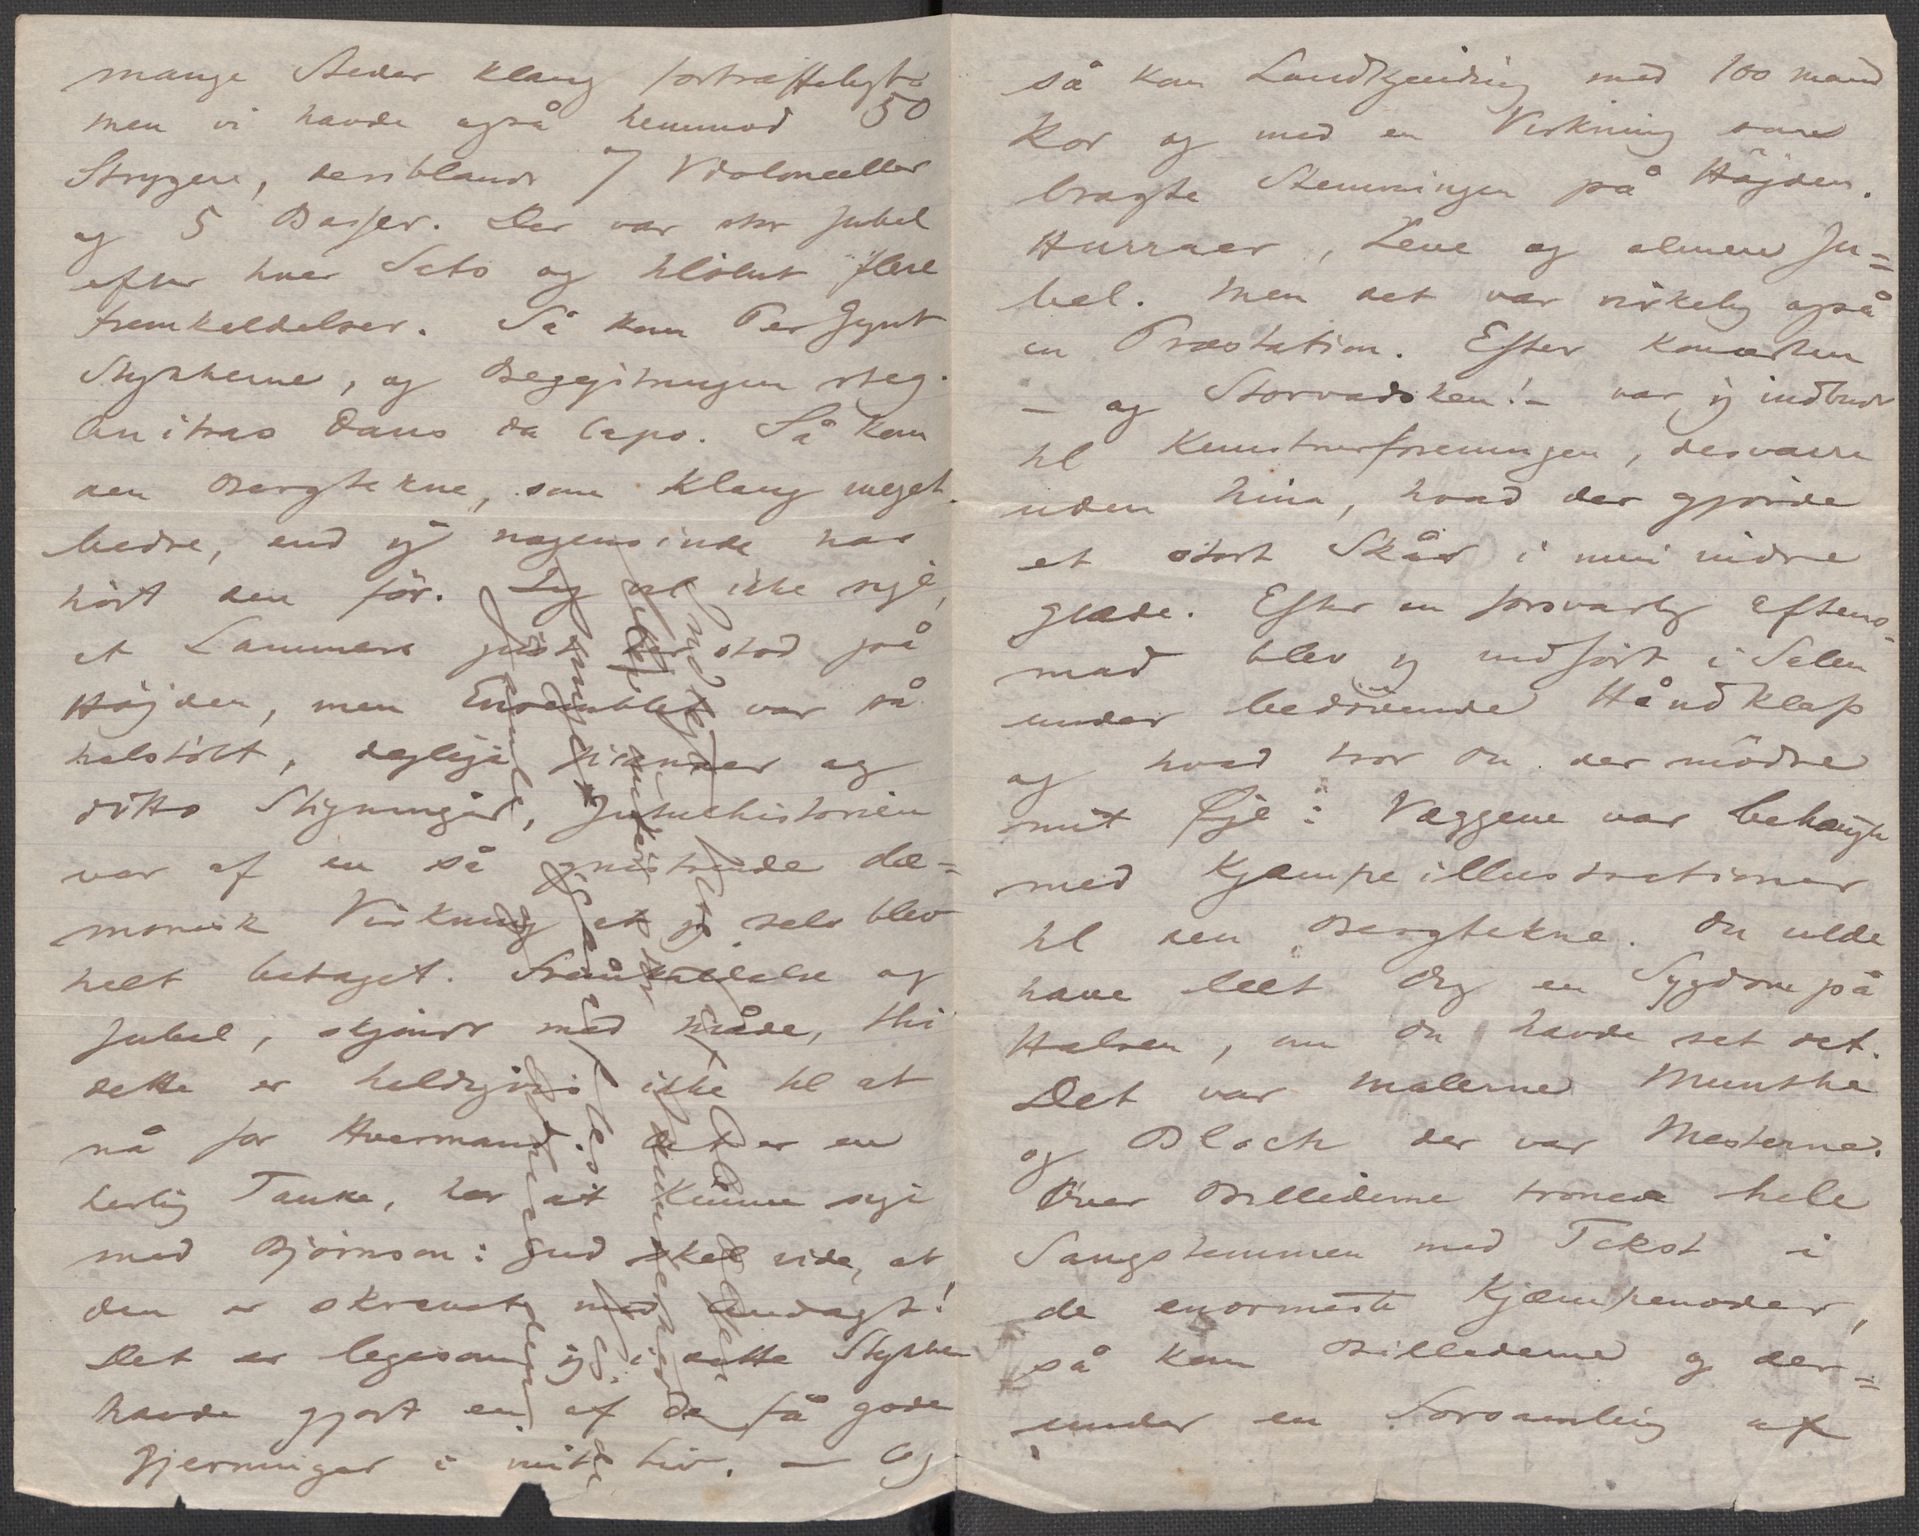 mange Steder klang fortræffeligt.
men vi havde også henimod 50
Strygere, deriblandt 7 Violonceller
og 5 Basser. Der var stor Jubel
efter hver Sats og tilslut flere
fremkaldelser. Så kom Per Gynt
Stykkerne, og Begejstringen steg.
Anitras Dans da Capo. Så kom
den Bergtekne, som klang meget
bedre, end jeg nogensinde har
hørt den før. Jeg vil ikke sige,
at Lammers just stod på
Højden, men Ensemblet var så
helstøbt, dejlige pianoer og
ditto Stigninger, Jutulhistorien
var af en så gnistrende dæ=
monisk Virkning at jeg selv blev
helt betaget. Fremkaldelse og
Jubel, skjøndt med Måde, thi
dette er heldigvis ikke til at
nå for Hvermand. Det er en
herlig Tanke, her at kunne sige
med Bjørnson: gud skal vide, at
den er skrevet med andagt!
Det er ligesom jeg i dette Stykke
havde gjort en af de få gode
Gjerninger i mit Liv. — Og
så kom Landkjending med 100 mand
Kor og med en Virkning som
bragte Stemningen på Højden.
Hurraer, Leve og almen Ju=
bel. Men det var virkelig også
en Præstation. Efter Konserten
— og Storvadsken! — var jeg indbudt
til Kunstnerforeningen, desværre
uden Nina, hvad der gjorde
et stort Skår i min indre
glæde. Efter en forsvarlig Aftens=
mad blev jeg indført i Salen
under bedøvende Håndklap
og hvad tror Du der mødte
mit Øje: Væggene var behængte
med Kjæmpeillustrationer
til den Bergtekne. Du vilde
have leet Dig en Sygdom på
Halsen, om Du havde set det.
Det var malerne Munthe
og Bloch der var Mesterne.
Over Billederne tronede hele
Sangstemmen med Tekst i
de enormeste Kjæmpenoder,
så kom Billederne og der=
under en Forsamling af